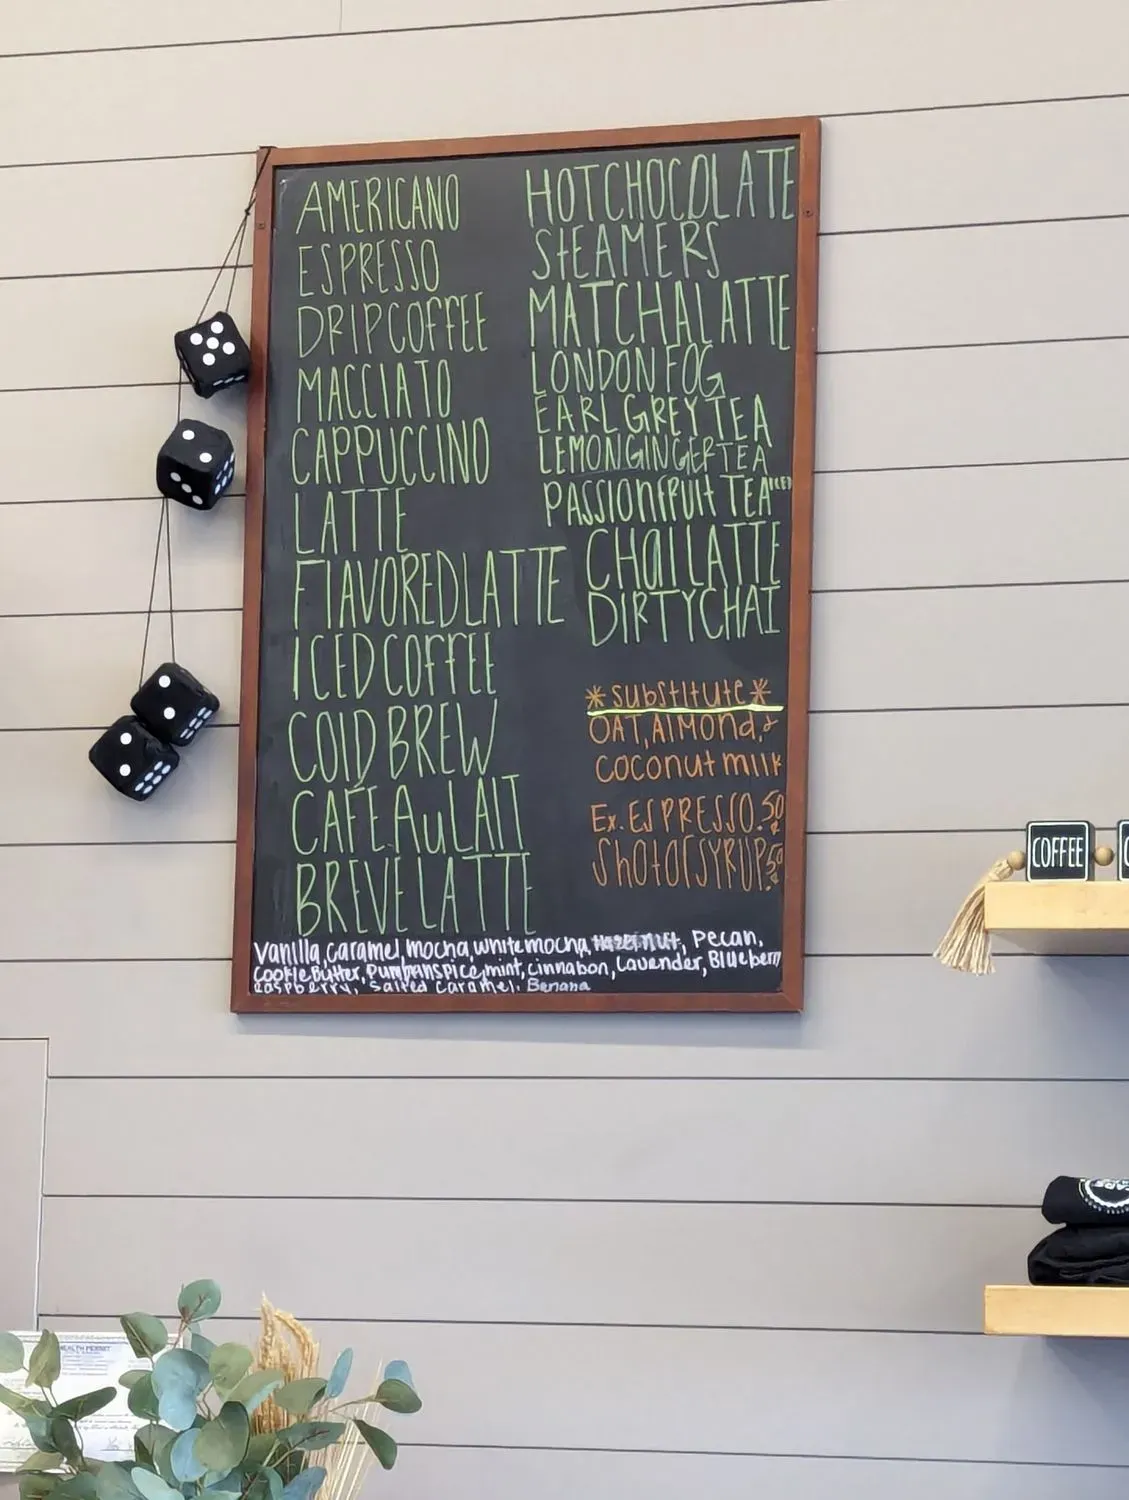 AMERICANO
ESPRESSO
DRIP COFFEE
MACCIATO
CAPPUCCINO
LATTE
FLAVORED LATTE
ICED COFFEE
COLD BREW
CAFÉ Au LAIT
BREVE LATTE
HOT CHOCOLATE
StEAMERS
MATCHA LATTE
LONDON FOG
EARL GREY TEA
LEMON GINGER TEA
PASSIONfRUIt TEA ICED
CHaI LATTE
DIRTY CHAI
*substitute*
OAT, AlMOnd, &
coconut milk
Ex. ESPRESSO .50¢
Shot of SYRUP .50¢
Vanilla, caramel, mocha, white mocha, Hazelnut, Pecan,
Cookie Butter, Pumpkin spice, mint, cinnabon, Lavender, Blueberry
raspberry, salted caramel, Banana
COFFEE
HEALTH PERMIT